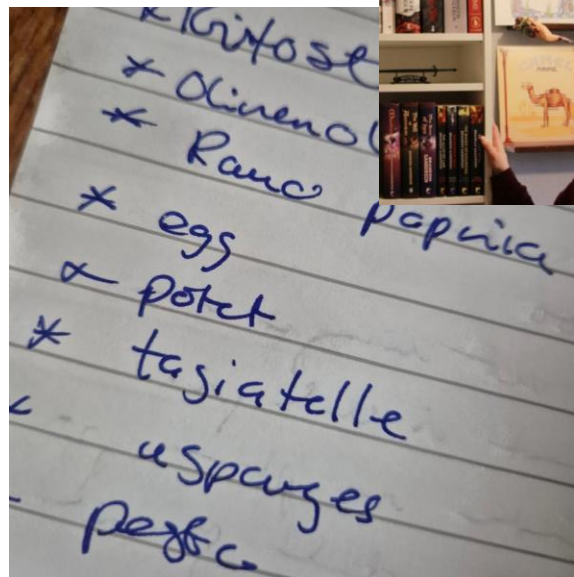 * Kvitost
* Olivenol
* Rand paprika
* egg
* potet
* tagiatelle
asparges
- pesto
CAMEL